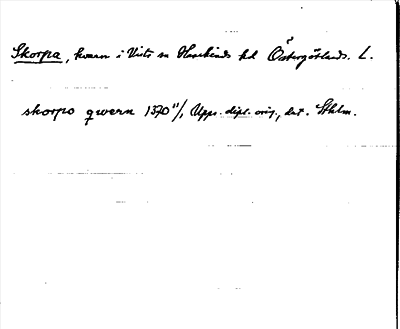 Skorpa, kvarn i Vists sn Hanekinds hd Östergötlands L.
skorpo qwern 1370 11/1 Upps. dipl. orig., dat. Sthlm.